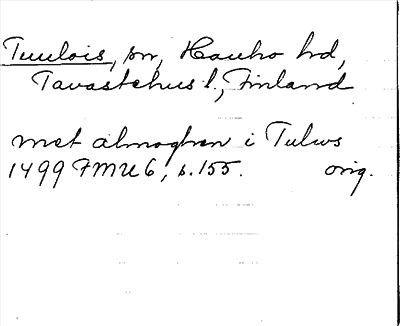 Tuulois, sn, Hauho hd,
Tavastehus l., Finland
met almoghen i Tulws
1499 FMU 6, s. 155. orig.